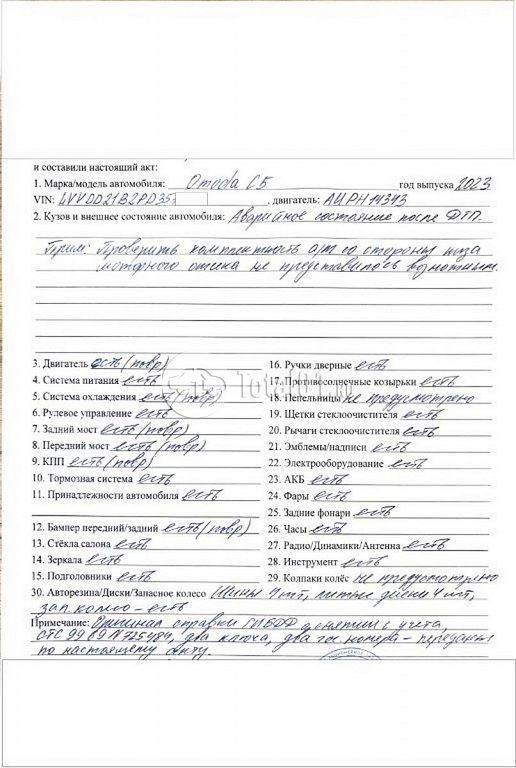 и составили настоящий акт:
1. Марка/модель автомобиля: Omoda C5 год выпуска 2023
VIN: LVVDD21B2PD357 , двигатель: AUPH14343
2. Кузов и внешнее состояние автомобиля: Аварийное состояние после ДТП.
Прим: Проверить комплектность а/м со стороны низа
моторного отсека не представилось возможным.
3. Двигатель есть (повр)
4. Система питания есть
5. Система охлаждения есть (повр)
6. Рулевое управление есть
7. Задний мост есть (повр)
8. Передний мост есть (повр)
9. КПП есть (повр)
10. Тормозная система есть
11. Принадлежности автомобиля есть
12. Бампер передний/задний есть (повр)
13. Стёкла салона есть
14. Зеркала есть
15. Подголовники есть
16. Ручки дверные есть
17. Противосолнечные козырьки есть
18. Пепельницы не предусмотрено
19. Щетки стеклоочистителя есть
20. Рычаги стеклоочистителя есть
21. Эмблемы/надписи есть
22. Электрооборудование есть
23. АКБ есть
24. Фары есть
25. Задние фонари есть
26. Часы есть
27. Радио/Динамики/Антенна есть
28. Инструмент есть
29. Колпаки колёс не предусмотрено
30. Авторезина/Диски/Запасное колесо Шины 4 шт, литые диски 4 шт,
зап. колесо - есть
Примечание: Оригинал справки ГИБДД о снятии с учета,
СТС 99 69 № 725484, два ключа, два гос. номера - переданы
по настоящему акту.
Total01.ru